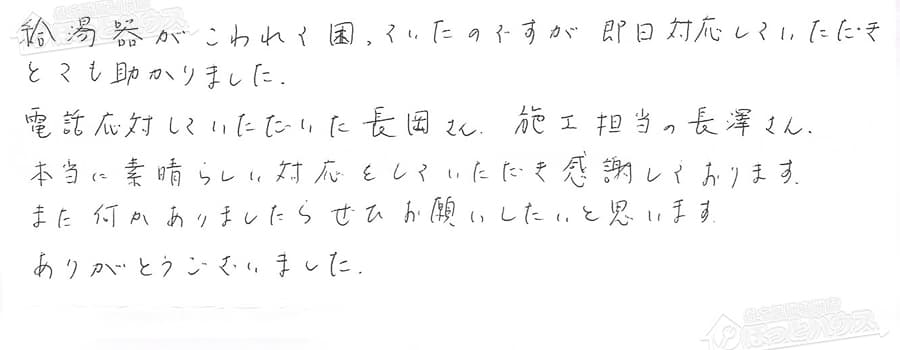 給湯器がこわれて困っていたのですが 即日対応していただき
とても助かりました.
電話応対していただいた長岡さん. 施工担当の長澤さん.
本当に素晴らしい対応をしていただき感謝しております.
また何かありましたらぜひお願いしたいと思います.
ありがとうございました.